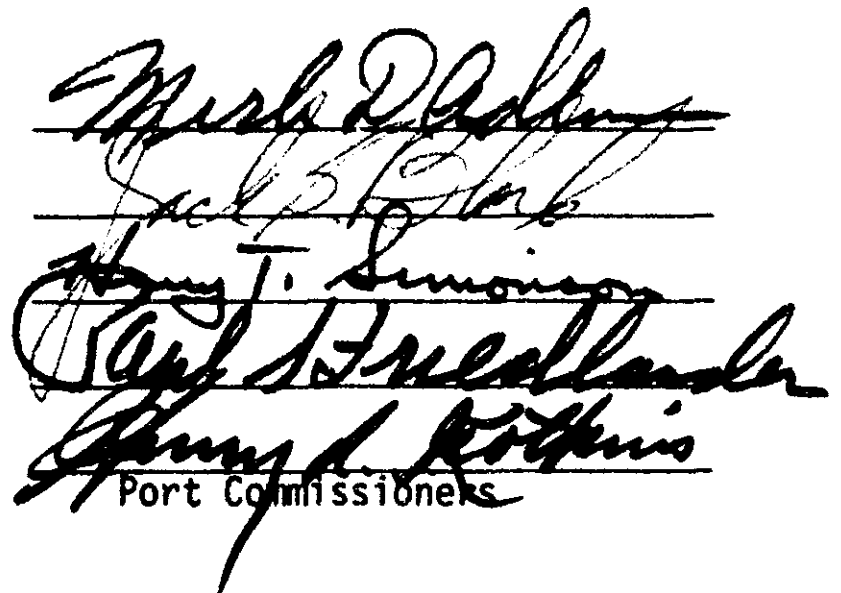 Merle D Adlum
Jack S Block
Henry T. Simonson
Paul S Friedlander
Henry L. Kotkins
Port Commissioners